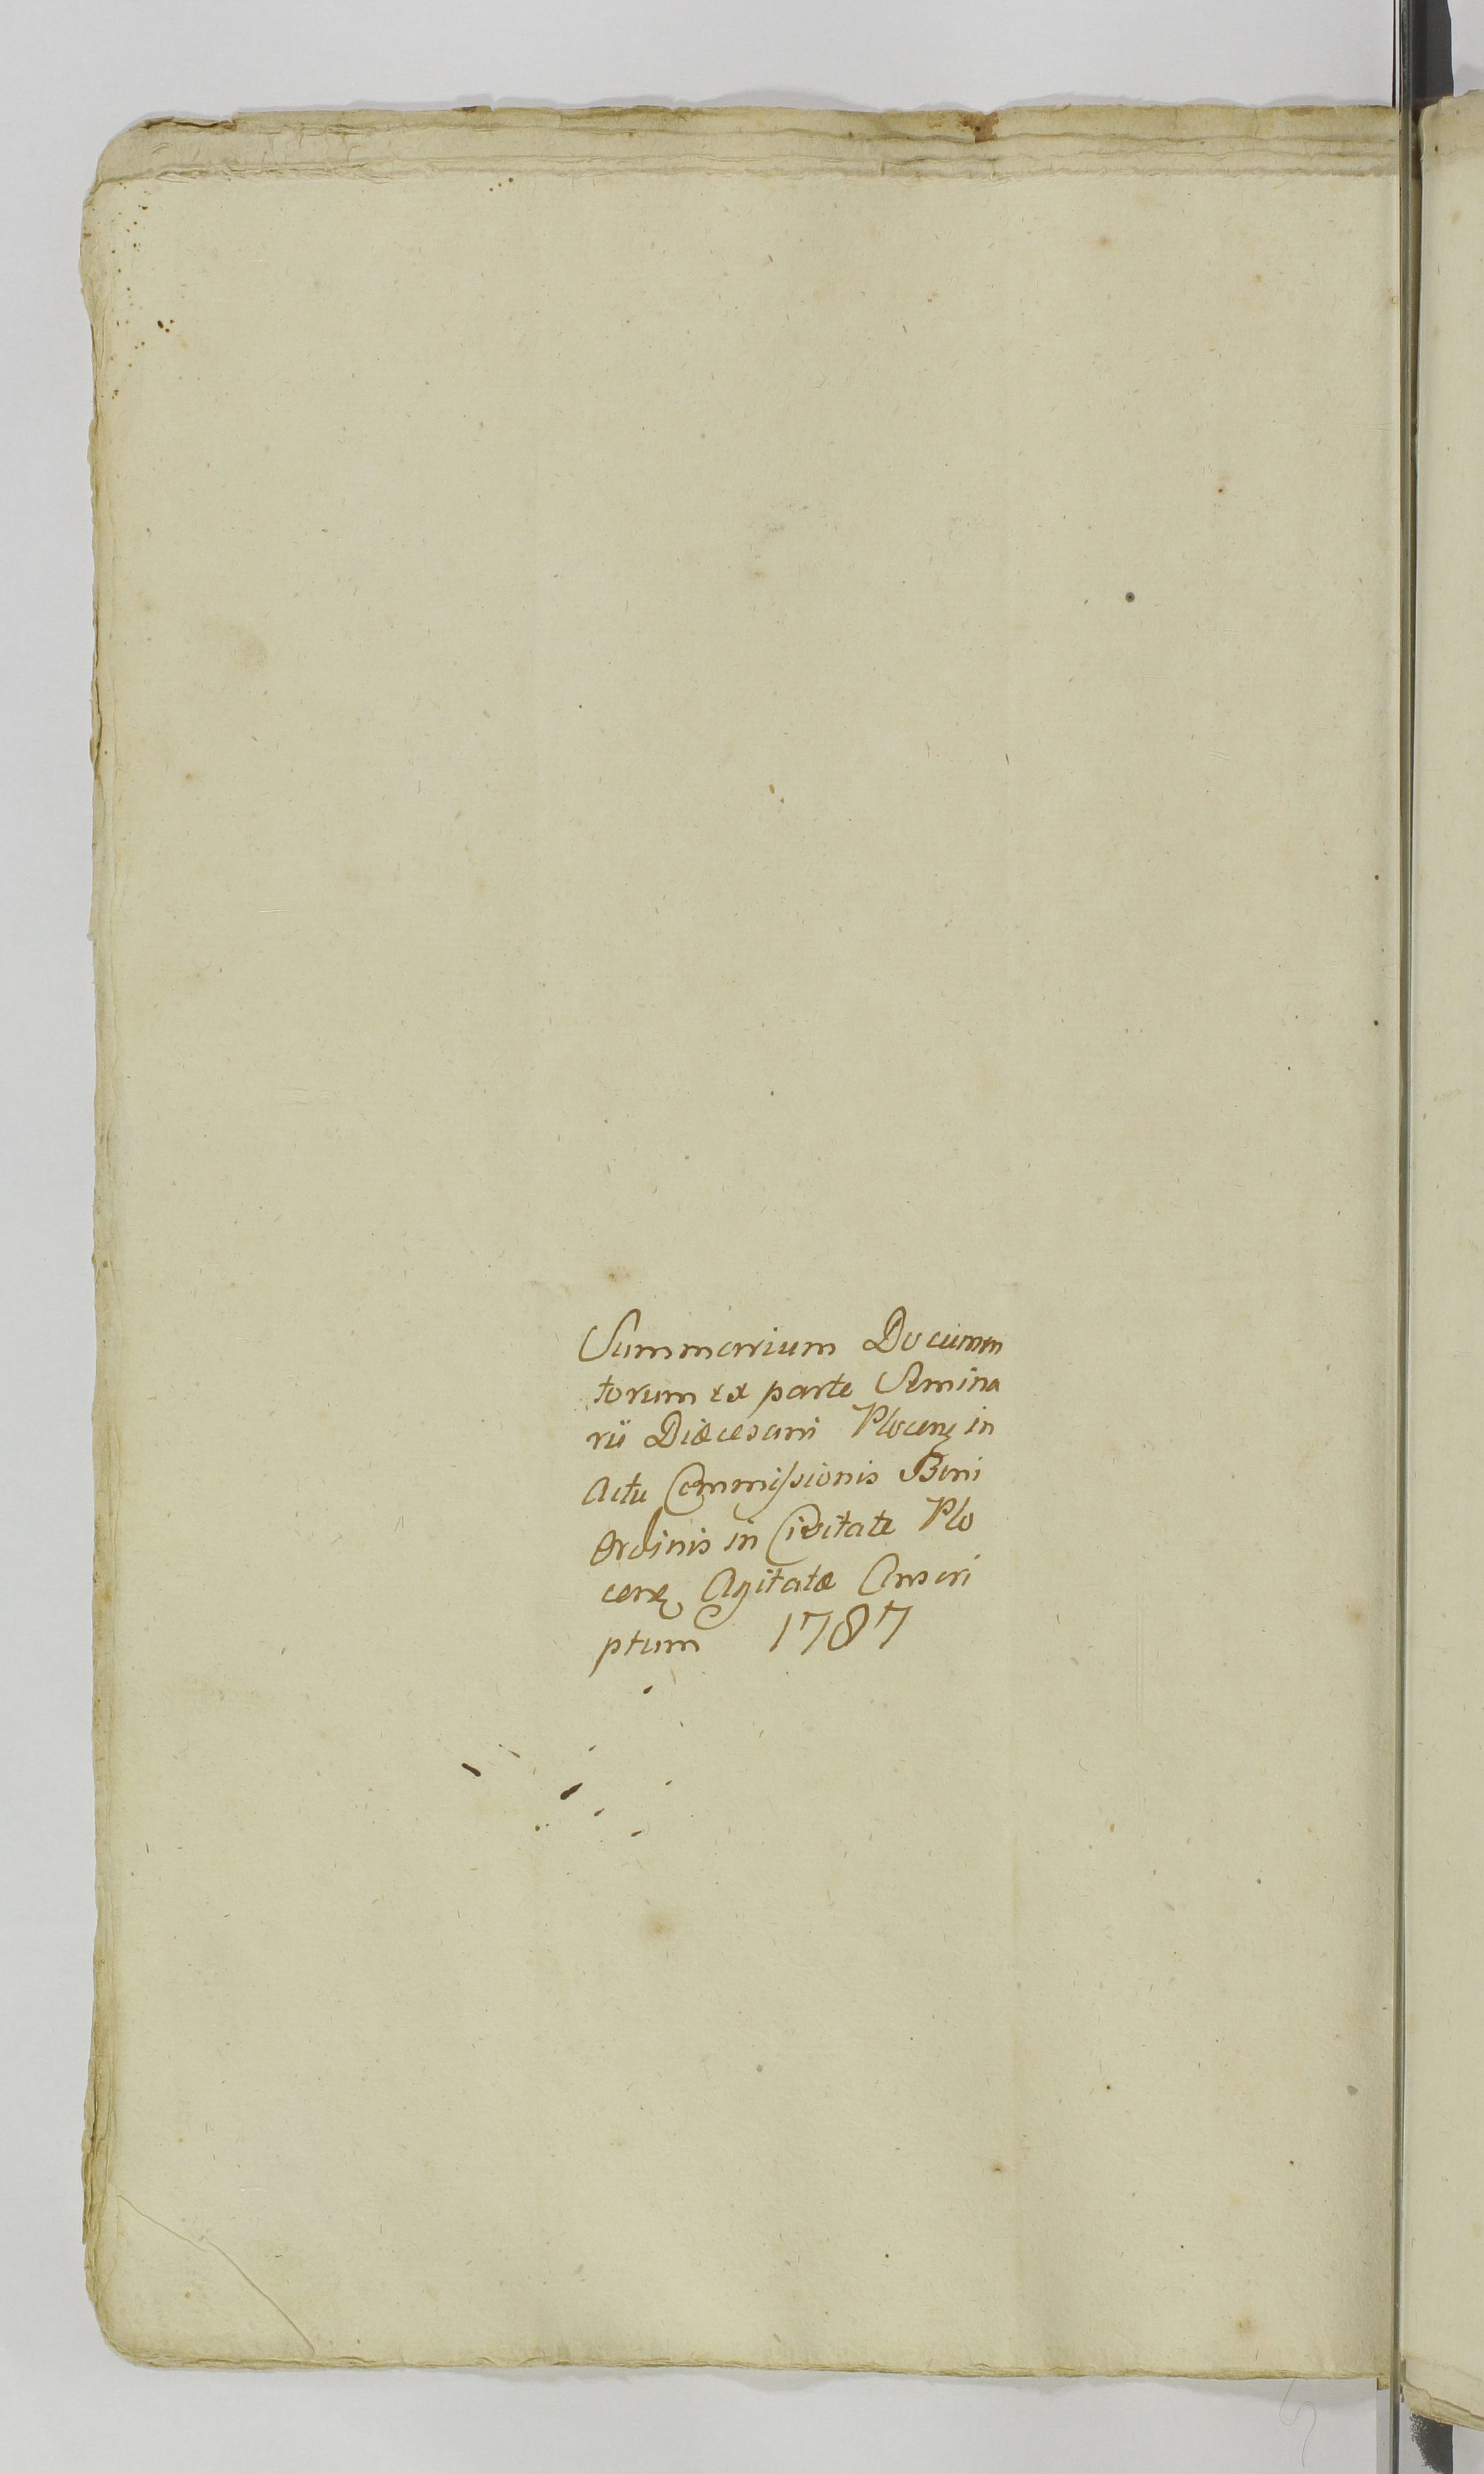 Summarium Documen
torum ex parte Semina
rii Diæcesani Plocenȝ in
Actu Commissionis Boni
Ordinis in Civitate Plo
cenȝ Agitatæ Conscri
ptum 1787